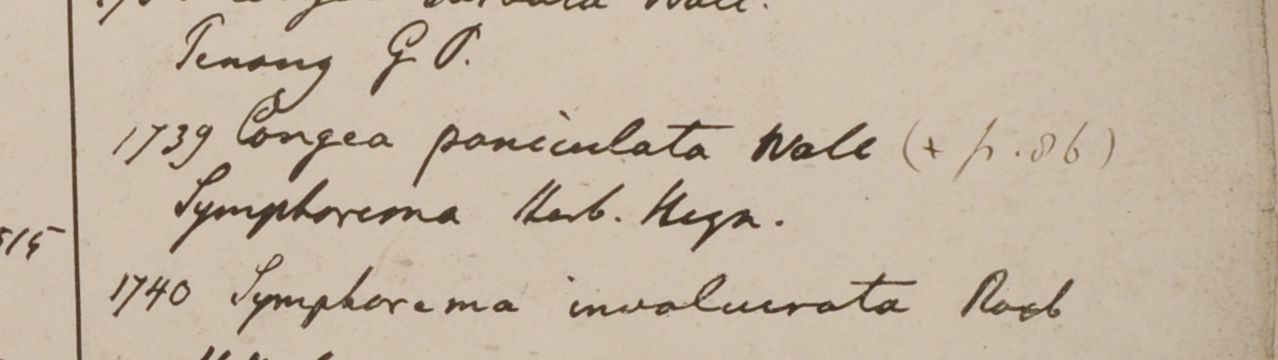 Wall.
Penang G P.
1739 Congea paniculata Wall (+ p. 86)
Symphorema Herb. Heyn.
515
1740 Symphorema involucrata Roxb